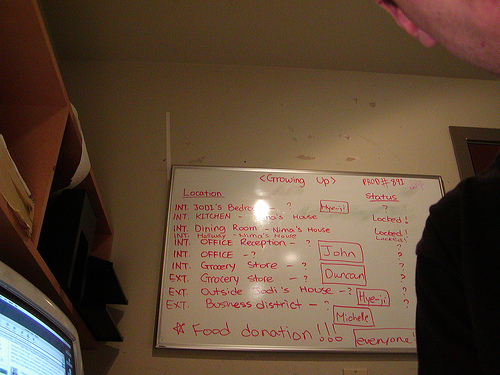 <Growing Up> PROD#841
Location Status
INT. JODI'S Bedroom - ? Hye-ji ?
INT. KITCHEN - Nima's House Locked!
INT. Dining Room - Nima's House Locked!
INT. Hallway - Nima's House Locked!
INT. OFFICE Reception - ? ?
INT. OFFICE - ? John ?
INT. Grocery Store - ? ?
EXT. Grocery Store - ? Duncan ?
EXT. Outside Jodi's House - ? Hye-ji ?
EXT. Business district - ? Michelle ?
☆ Food donation!!! everyone!